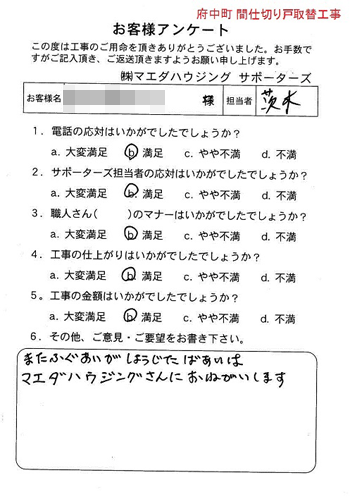 府中町 間仕切り戸取替工事
お客様アンケート
この度は工事のご用命を頂きありがとうございました。お手数で
すがご記入頂き、ご返送頂きますようお願い申し上げます。
㈱マエダハウジング サポーターズ
お客様名 様 担当者 茨木
1．電話の応対はいかがでしたでしょうか？
a. 大変満足 b. 満足 c. やや不満 d. 不満
2．サポーターズ担当者の応対はいかがでしたでしょうか？
a. 大変満足 b. 満足 c. やや不満 d. 不満
3．職人さん( )のマナーはいかがでしたでしょうか？
a. 大変満足 b. 満足 c. やや不満 d. 不満
4．工事の仕上がりはいかがでしたでしょうか？
a. 大変満足 b. 満足 c. やや不満 d. 不満
5。工事の金額はいかがでしたでしょうか？
a. 大変満足 b. 満足 c. やや不満 d. 不満
6．その他、ご意見・ご要望をお書き下さい。
またふぐあいがしょうじたばあいは
マエダハウジングさんにおねがいします